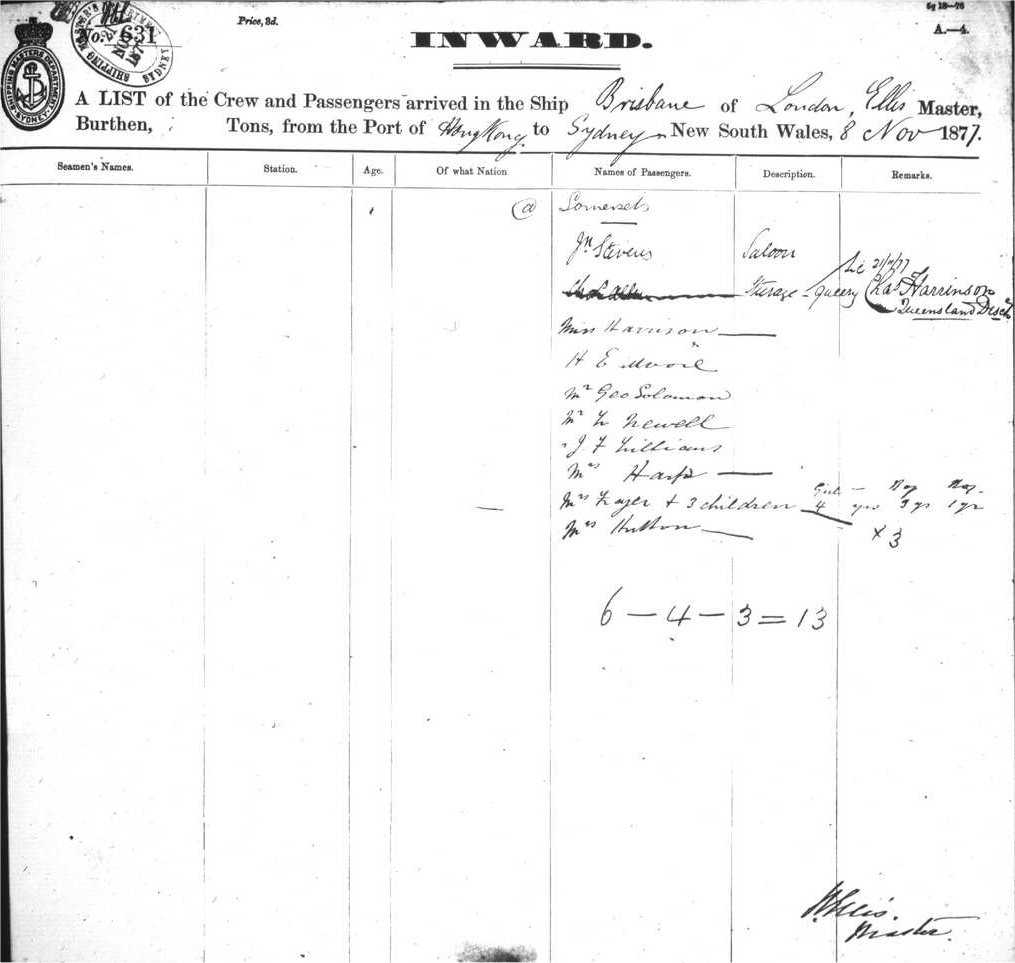 Price, 3d.
6g 18—76
A.—4.
No. 631
SHIPPING MASTER'S
SYDNEY
SHIPPING MASTERS DEPARTMENT
SYDNEY
INWARD.
A LIST of the Crew and Passengers arrived in the Ship Brisbane of London, Ellis Master,
Burthen, Tons, from the Port of Hong Kong to Sydney New South Wales, 8 Nov 1877.
Seamen's Names. Station. Age. Of what Nation Names of Passengers. Description. Remarks.
@ Somersets
Jn Stevens Saloon
21/11/77
Sterage - query Chas Harrinson
Queensland
Miss Harrison —
H E Moore
Mr Geo Solomon
Mr Newell
J F
Mrs Harp —
Mrs Frazer + 3 children Girl 4 yrs Boy 3 yrs Boy 1 yr
Mrs Hutton —
x 3
6 — 4 — 3 = 13
Ellis.
Master.